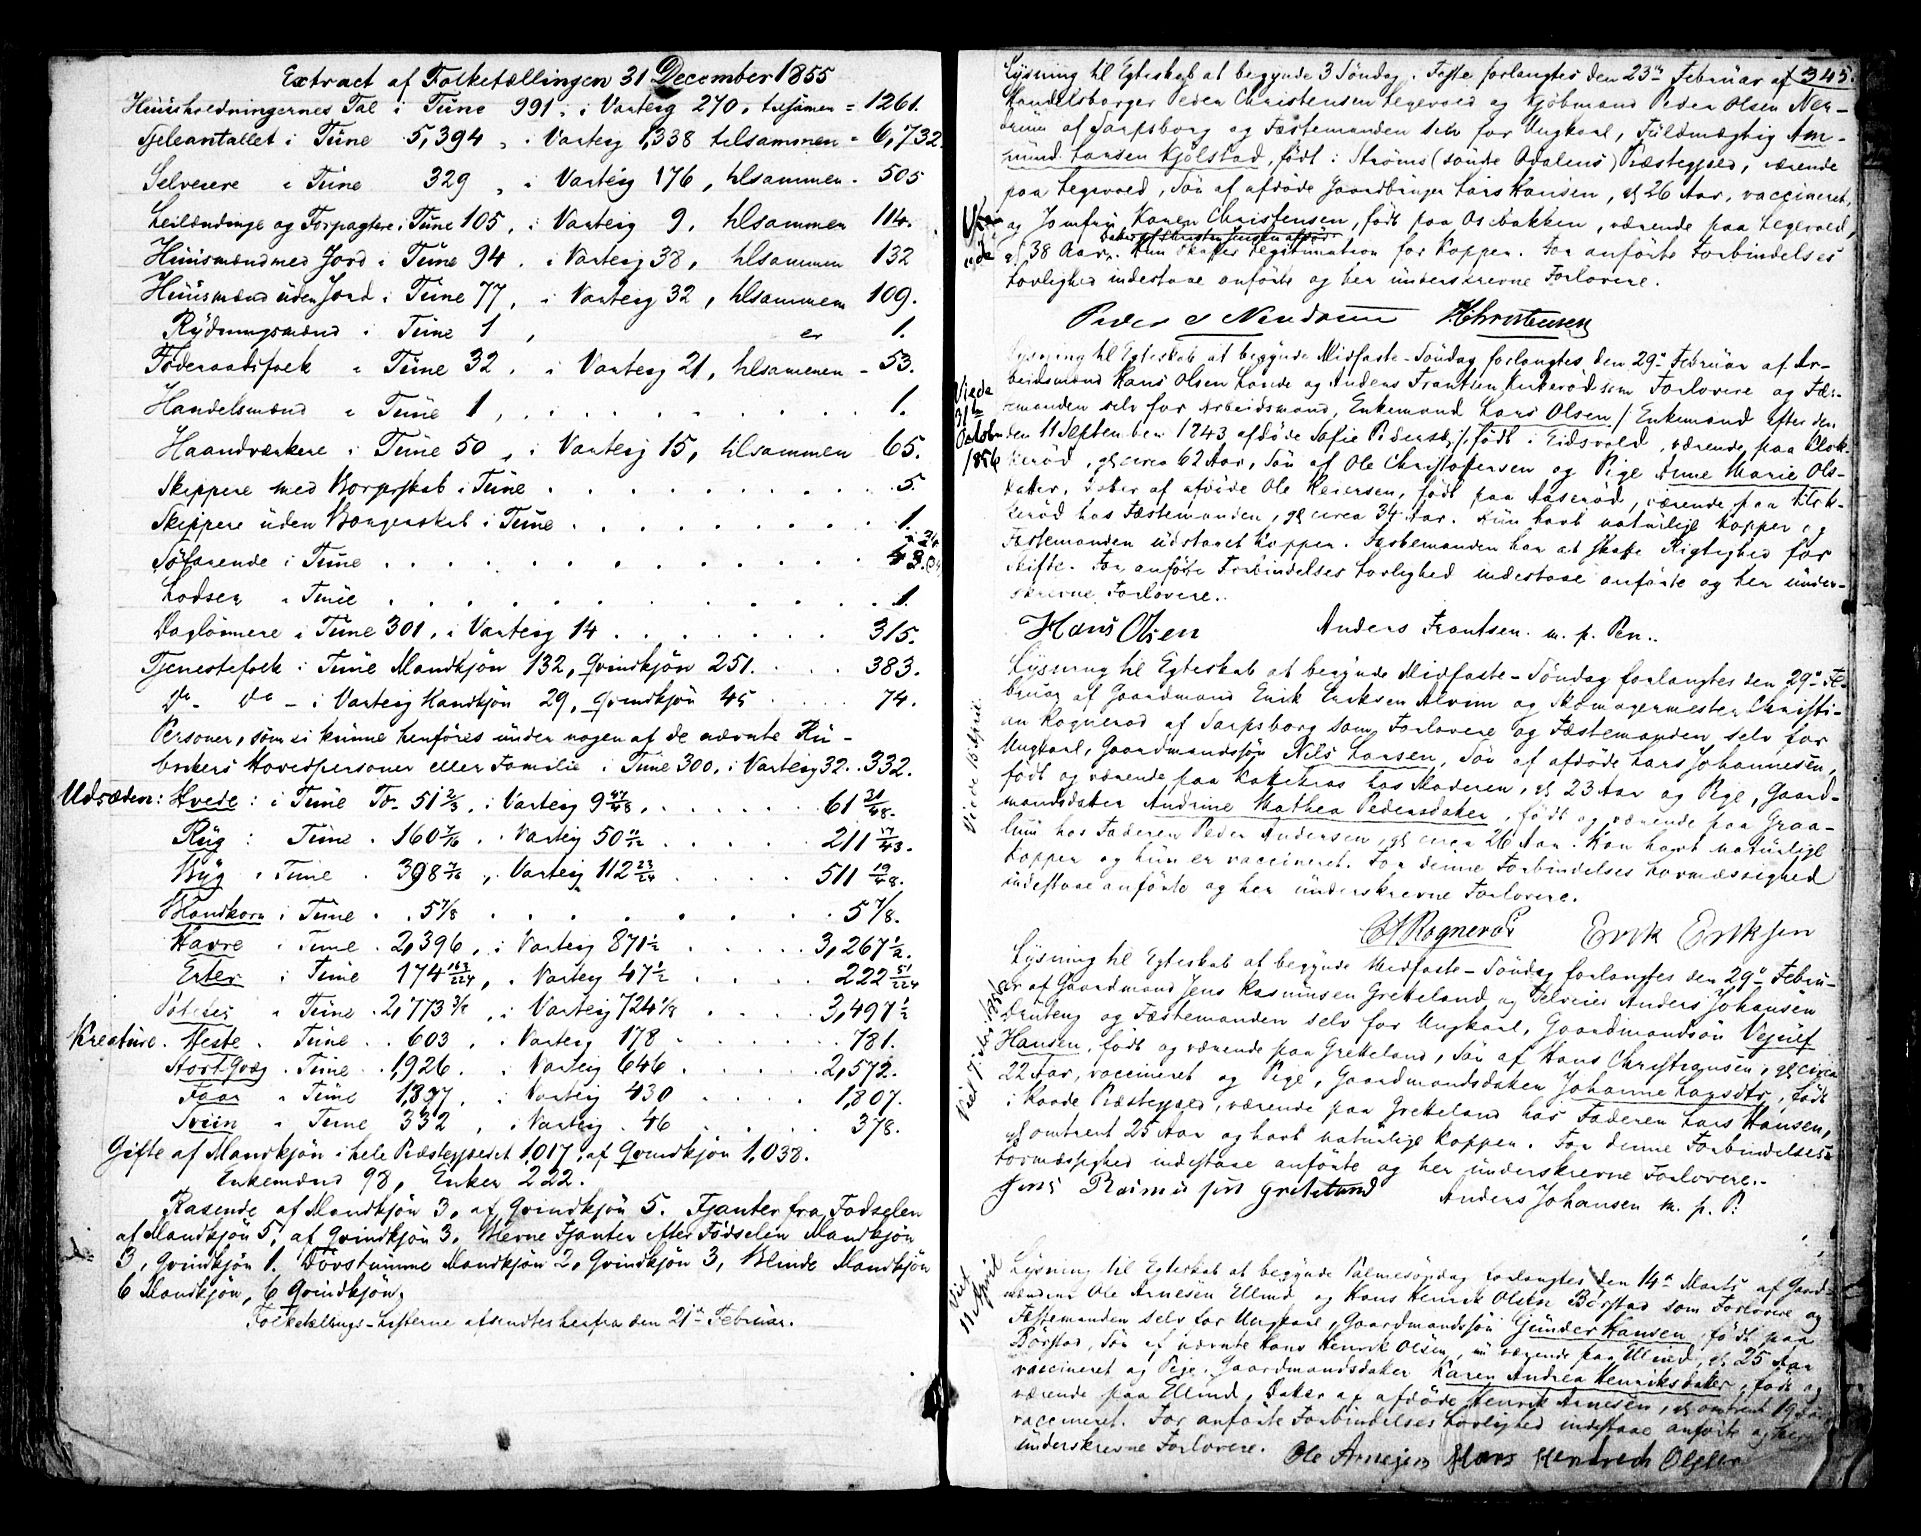 Extract af Folketællingen 31 December 1855
Huusholdningernes Tal i Tune 991, i Varteig 270, tilsamen = 1261.
Sjeleantallet i Tune 5,394, i Varteig 1,338 tilsammen = 6,732.
Selveiere i Tune 329, i Varteig 176, tilsammen - 505
Leilændinge og Forpagtere i Tune 105, i Varteig 9, tilsammen 114.
Huusmænd med Jord i Tune 94, i Varteig 38, tilsammen 132
Huusmænd uden Jord i Tune 77, i Varteig 32, tilsammen 109.
Rydningsmænd i Tune 1, er 1.
Føderaadsfolk i Tune 32, i Varteig 21, tilsammen - 53.
Handelsmænd i Tune 1, 1.
Haandværkere i Tune 50, i Varteig 15, tilsammen 65.
Skippere med Borgerskab i Tune 5.
Skippere uden Borgerskab i Tune 1.
Søfarende i Tune 43.
Lodser i Tune 1.
Daglønnere i Tune 301, i Varteig 14 315.
Tjenestefolk i Tune Mandkjøn 132, Qvindkjøn 251. 383.
do - do - i Varteig Mandkjøn 29, Qvindkjøn 45 74.
Personer, som ei kunne henføres under nogen af de nævnte Ru-
brikers Hovedpersoner eller Familie i Tune 300, i Varteig 32. 332.
Udsæden: Hvede: i Tune Tr. 51 2/3, i Varteig 9 47/48, 61 31/48.
Rug: Tune 160 7/16, Varteig 50 11/12 211 17/48.
Byg i Tune 398 7/16, Varteig 112 23/24 511 19/48.
Blandkorn i Tune 5 7/8 5 7/8.
Havre i Tune 2,396, i Varteig 871 1/2 3,267 1/2.
Erter i Tune 174 163/224, Varteig 47 1/2 222 51/224
Poteter i Tune 2,773 3/8, i Varteig 724 1/8 3,497 1/2
Kreature. Heste i Tune 603, Varteig 178 781.
Stort Qvæg i Tune 1,926. Varteig 646 2,572.
Faar i Tune 1,377, Varteig 430 1,807.
Sviin i Tune 332, i Varteig 46 378.
Gifte af Mandkjøn i hele Præstegjeldet 1,017, af Qvindkjøn 1,038.
Enkemænd 98, Enker 222.
Rasende af Mandkjøn 3, af Qvindkjøn 5. Fjanter fra Fødselen
af Mandkjøn 5, af Qvindkjøn 3. Blevne Fjanter efter Fødselen Mandkjøn
3, Qvindkjøn 1. Døvstumme Mandkjøn 2, Qvindkjøn 3, Blinde Mandkjøn
6 Mandkjøn, 6 Qvindkjøn.
Folketællings-Listerne afsendtes herfra den 21de Februar.
345.
Lysning til Egteskab at begynde 3 Søndag i Faste forlangtes den 23de Februar af
Handelsborger Peder Christensen Legevold og Kjøbmand Peder Olsen Nen-
drum af Sarpsborg og Fæstemanden selv for Ungkarl, Fuldmægtig Am-
mund Larsen Kjølstad, født i Strøms (søndre Odalens) Præstegjeld, værende
paa Legevold, Søn af afdøde Gaardbruger Lars Hansen, gl 26 Aar, vaccineret,
og Jomfru Karen Christensen, født paa Osebakken, værende paa Legevold,
Datter af Christen Jensen
gl 38 Aar. Hun skaffer Legitimation for Kopper. For anførte Forbindelses
Lovlighed indestaae anførte og her underskrevne Forlovere.
Peder O Nendrum PChristensen
Viede
31te
October
1856
Lysning til Egteskab at begynde Midfaste-Søndag forlangtes den 29de Februar af Ar-
beidsmand Hans Olsen Lande og Anders Frantsen Kirkerød som Forlovere og Fæ-
stemanden selv for Arbeidsmand, Enkemand Lars Olsen (Enkemand efter den
den 11 September 1843 afdøde Sofie Pedersd.) født i Eidsvold, værende paa Klok-
kerød, gl circa 62 Aar, Søn af Ole Christofersen og Pige Anne Marie Ols-
datter, Datter af afdøde Ole Reiersen, født paa Aaserød, værende paa Klok-
kerød hos Fæstemanden, gl circa 34 Aar. Hun havt naturlige Kopper og
Fæstemanden udstaaet Kopper. Fæstemanden har at skaffe Rigtighed for
Skifte. For anførte Forbindelses Lovlighed indestaae anførte og her under-
skrevne Forlovere.
Hans Olsen Anders Frantsen. m. p. Pen.
Viede 18 April
Lysning til Egteskab at begynde Midfaste-Søndag forlangtes den 29de Fe-
bruar af Gaardmand Erik Eriksen Alvim og Skomagermester Christi-
an Rognerød af Sarpsborg som Forlovere og Fæstemanden selv for
Ungkarl, Gaardmandssøn Nils Larsen, Søn af afdøde Lars Johannesen,
født og værende paa hos Moderen, gl 23 Aar og Pige, Gaard-
mandsdatter Andrine Mathea Pedersdatter, født og værende paa Graa-
lum hos Faderen Peder Andersen, gl circa 26 Aar. Han havt naturlige
Kopper og hun er vaccineret. For denne Forbindelses Lovmæssighed
indestaae anførte og her underskrevne Forlovere.
Rognerød Erik Eriksen
Lysning til Egteskab at begynde Midfaste-Søndag forlangtes den 29de Febru-
ar af Gaardmand Jens Rasmusen Grekeland og Selveier Anders Johansen
og Fæstemanden selv for Ungkarl, Gaardmandssøn
Hansen, født og værende paa Grekeland, Søn af Hans Christiansen, gl circa
22 Aar, vaccineret og Pige, Gaardmandsdatter Johanne Larsdtr, født
i Raade Præstegjeld, værende paa Grekeland hos Faderen Lars Hansen,
gl omtrent 25 Aar og havt naturlige Kopper. For denne Forbindelses
Lovmæssighed indestaae anførte og her underskrevne Forlovere.
Jens Rasmusen Grekeland Anders Johansen m. p. P.
Viet
11 April
Lysning til Egteskab at begynde Palmesøndag forlangtes den 14de Marts af Gaard-
mændene Ole Arnesen Ellind og Hans Henrik Olsen Børstad som Forlovere og
Fæstemanden selv for Ungkarl, Gaardmandssøn Gunder Hansen, født paa
Børstad, Søn af nævnte Hans Henrik Olsen, nu værende paa Ellind, gl 25 Aar
vaccineret og Pige, Gaardmandsdatter Karen Andrea Henriksdatter, født og
værende paa Ellind, Datter af afdøde Henrik Arnesen, gl omtrent 19 Aar
vaccineret. For anførte Forbindelses Lovlighed indestaae anførte og her
underskrevne Forlovere. Ole Arnesen Hans Hendrech Olsen